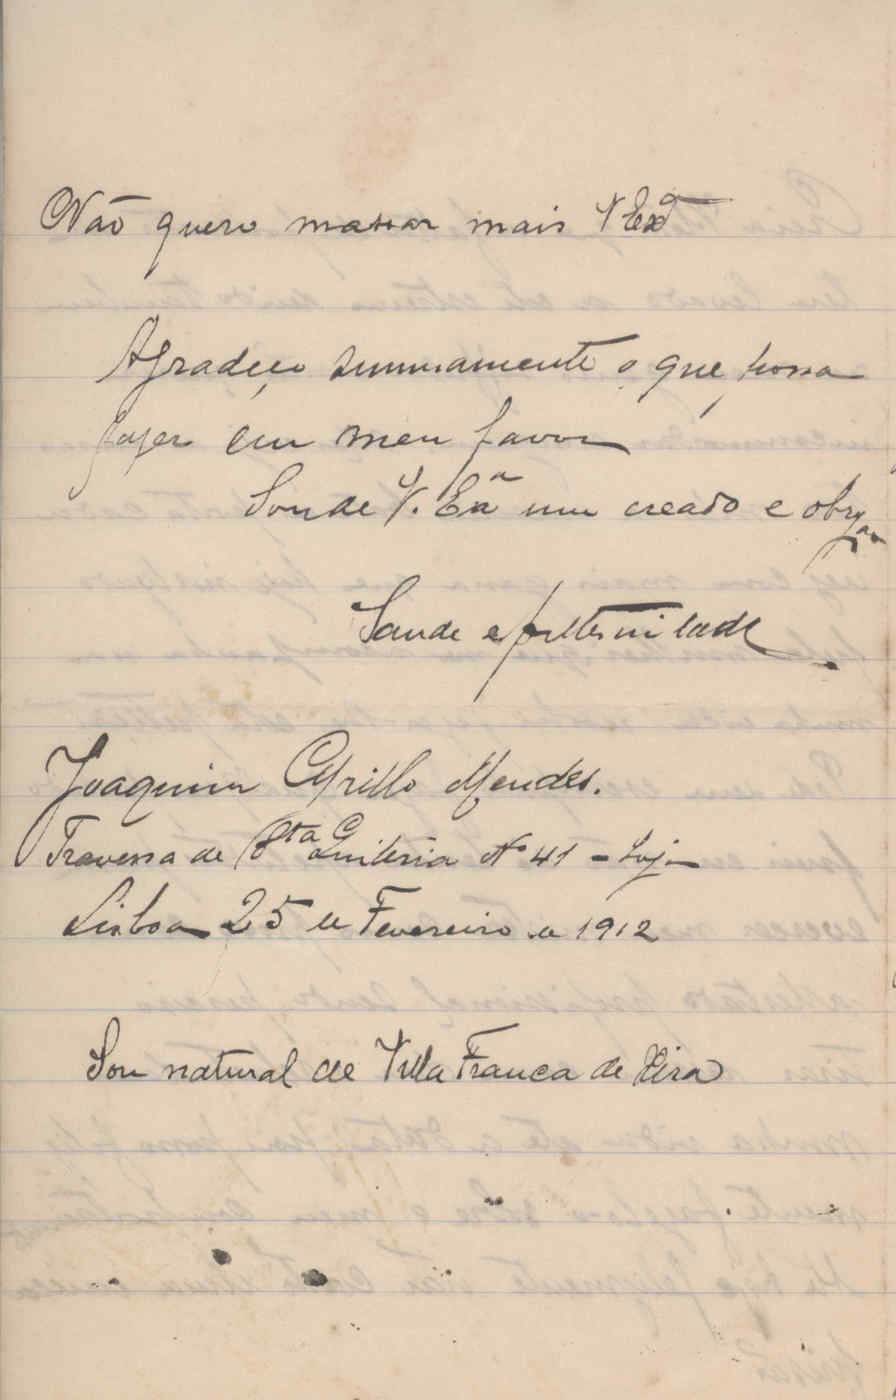 Não quero massar mais V Exª
Agradeço summamente o que possa
fazer em meu favor
Sou de V. Exª um creado e obrgº
Saude e fraternidade
Joaquim Cyrillo Mendes.
Travessa de Stª Quiteria Nº 41 - Loja
Lisboa 25 de Fevereiro de 1912
Sou natural de Villa Franca de Xira